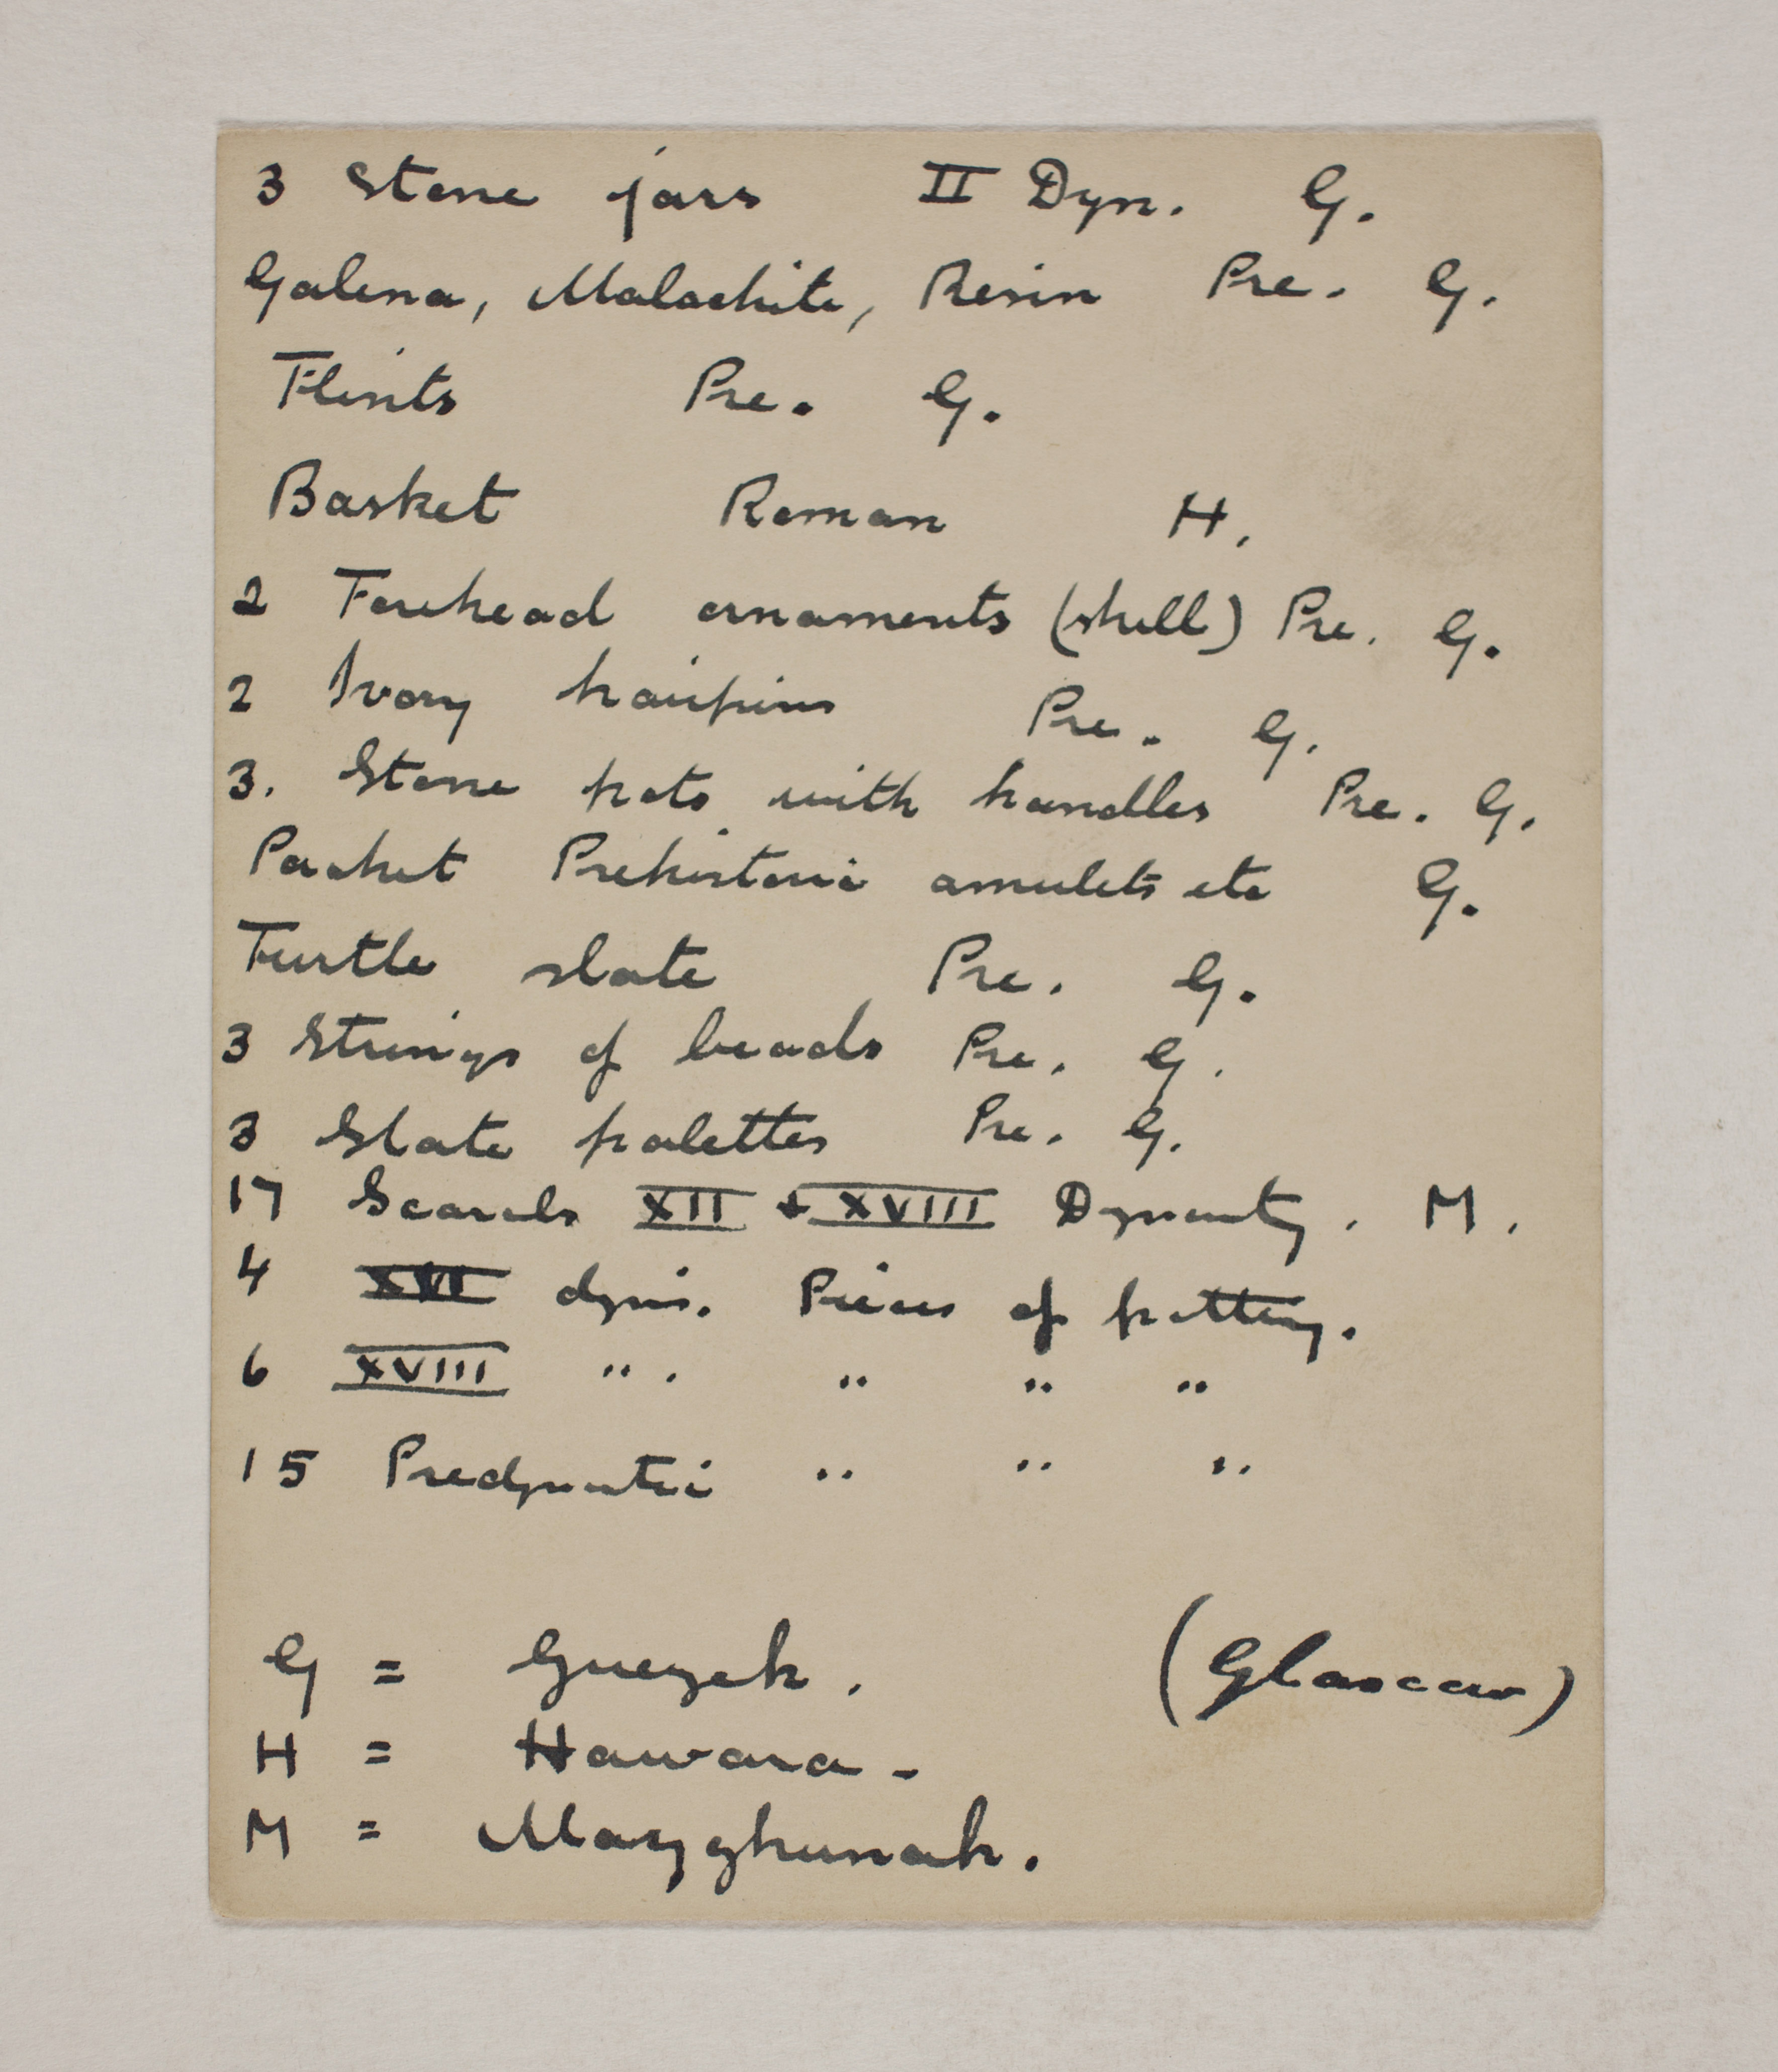 3 Stone jars II Dyn. G.
Galena, Malachite, Resin Pre. G.
Flints Pre. G.
Basket Roman H.
2 Forehead ornaments (shell) Pre. G.
2 Ivory hairpins Pre. G.
3. Stone pots with handles Pre. G.
Packet Prehistoric amulets etc G.
Turtle slate Pre. G.
3 Strings of beads Pre. G.
3 Slate palettes Pre. G.
17 Scarabs XII + XVIII Dynasty. M.
4 dyn. Pieces of pottery.
6 XVIII " . " " "
15 Predynastic " " "
G = Guezeh. (Glascow)
H = Hawara -
M = Mazghunah.